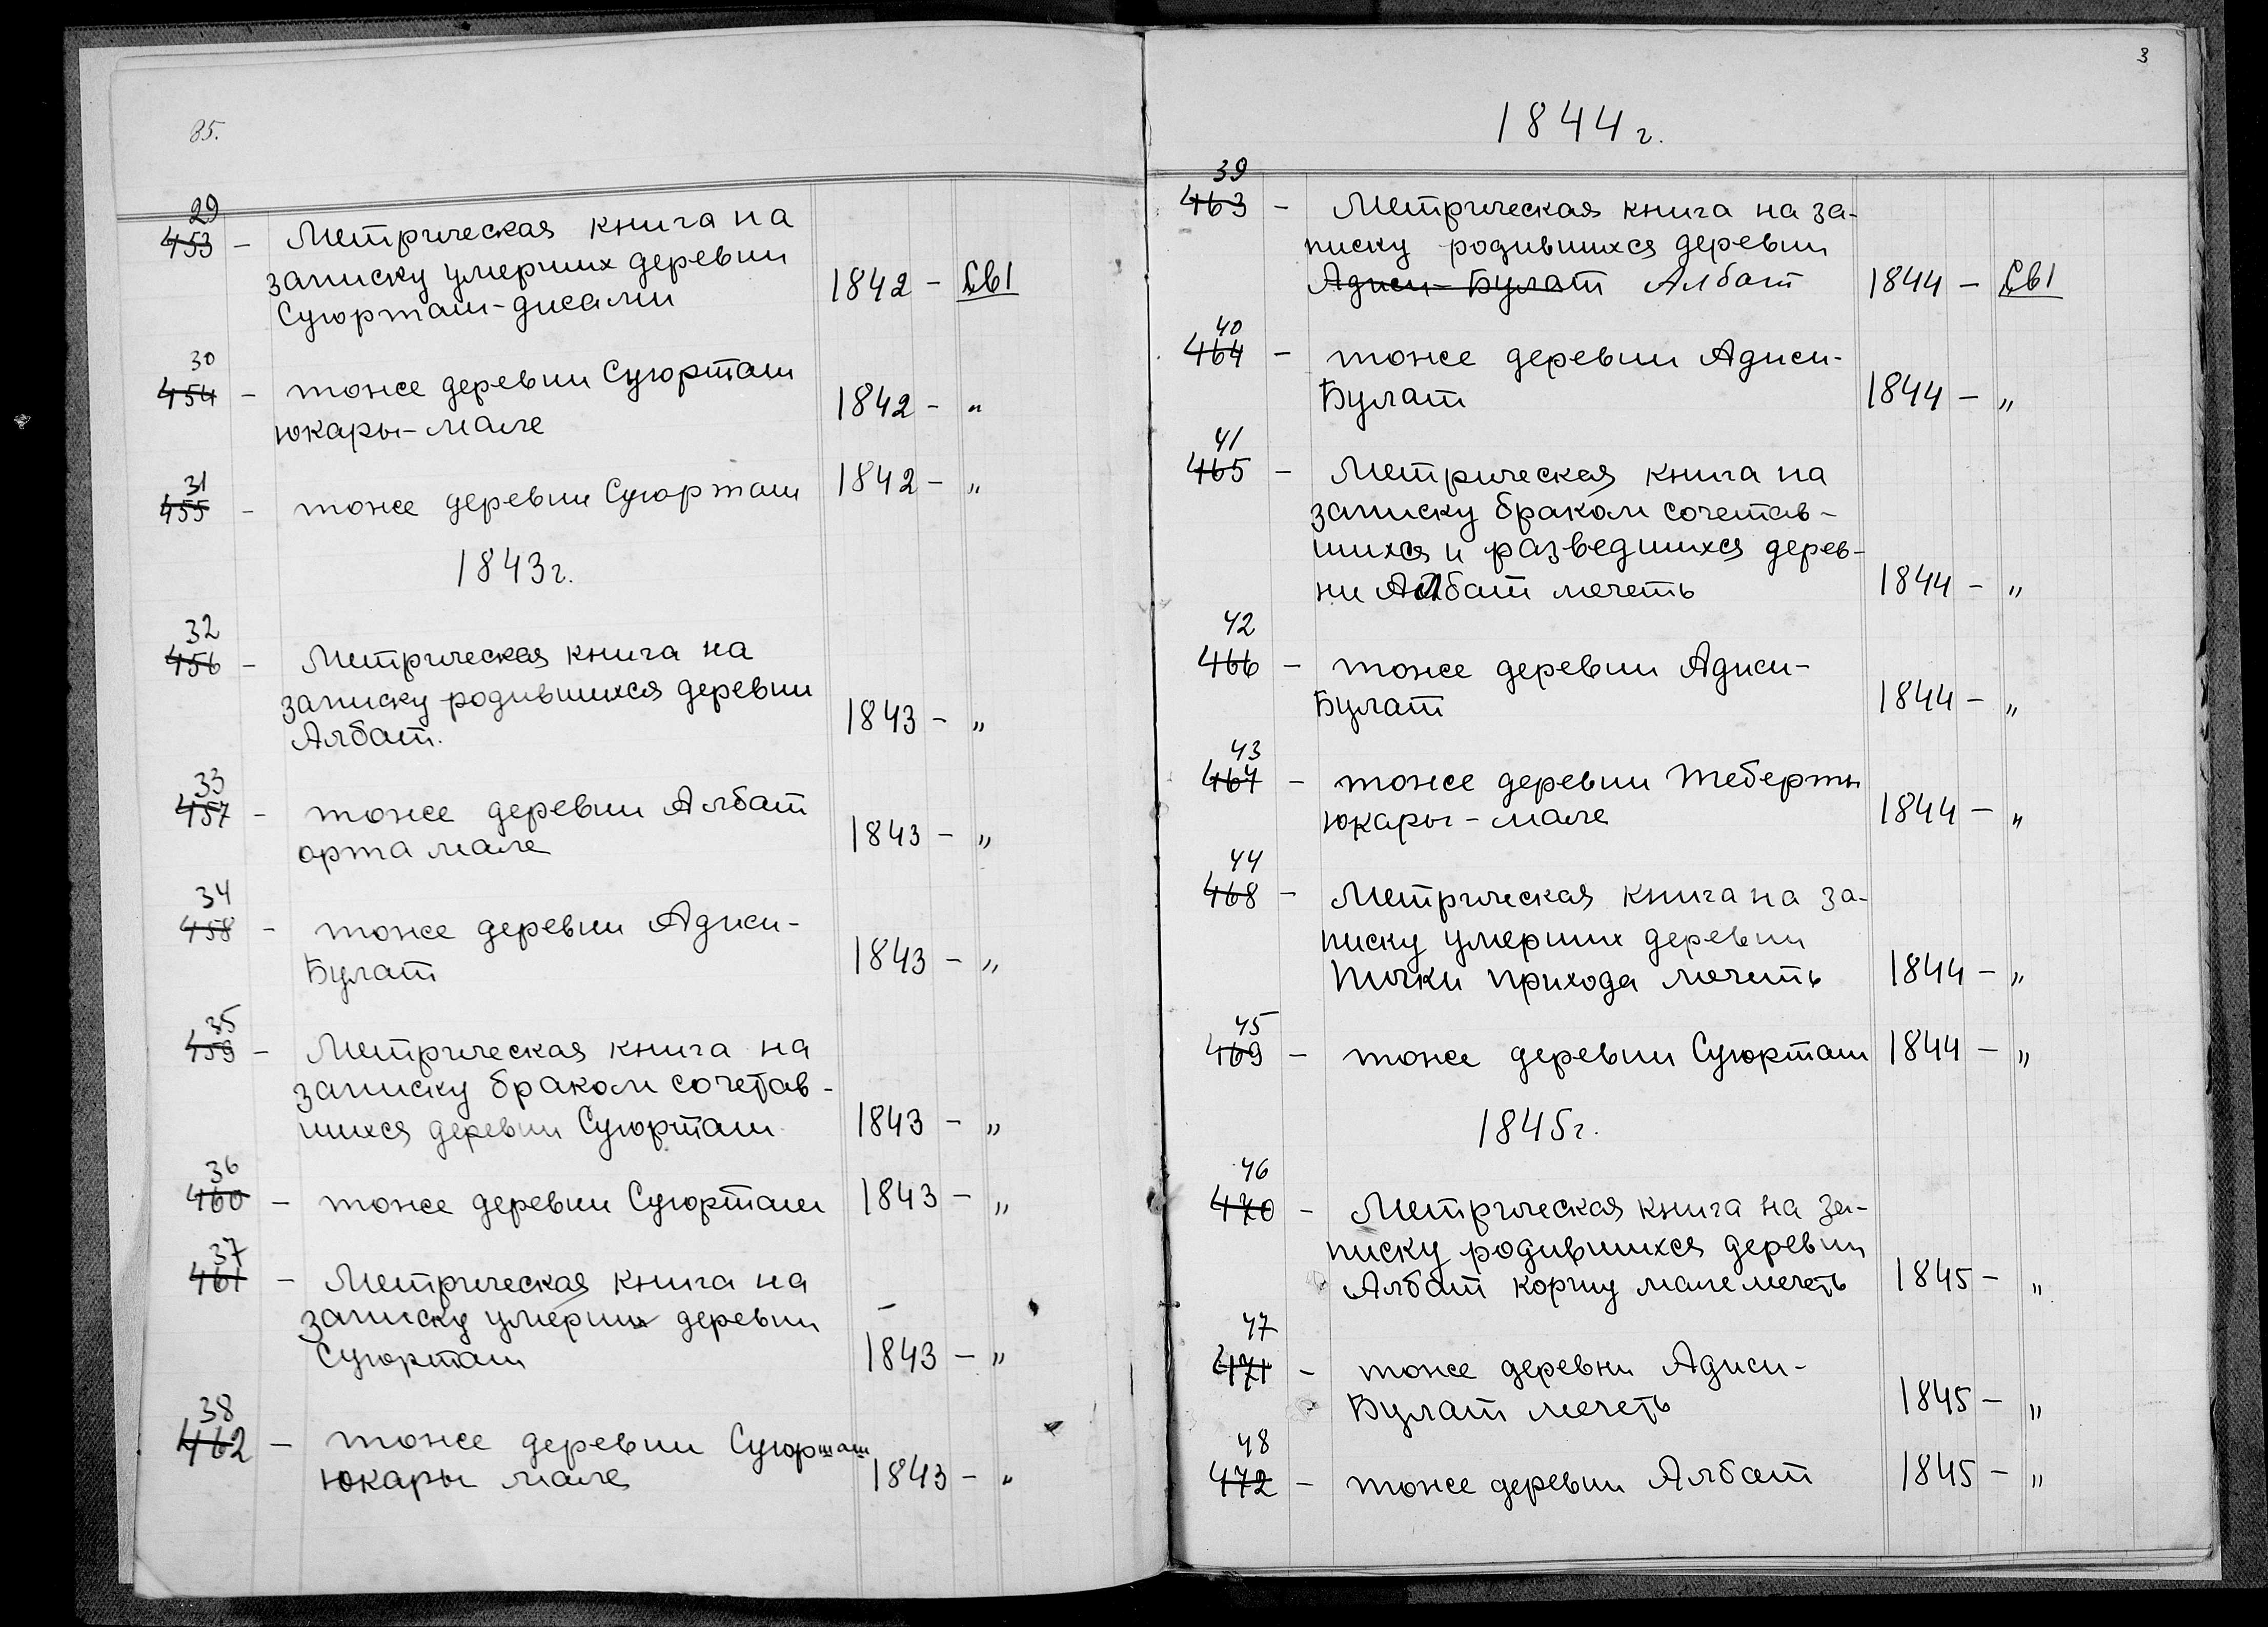 85.
29
453 - Метрическая книга на
записку умерших деревни
Суюрташ-джами 1842 - Св1
30
454 - тоже деревни Суюрташ
юкары-мале 1842 - "
31
455 - тоже деревни Суюрташ 1842 - "
1843г.
32
456 - Метрическая книга на
записку родившихся деревни
Албат. 1843 - "
33
457 - тоже деревни Албат
орта мале 1843 - "
34
458 - тоже деревни Аджи-
Булат 1843 - "
35
459 - Метрическая книга на
записку браком сочетав-
шихся деревни Суюрташ 1843 - "
36
460 - тоже деревни Суюрташ 1843 - "
37
461 - Метрическая книга на
записку умерших деревни
Суюрташ 1843 - "
38
462 - тоже деревни Суюрташ
юкары мале 1843 - "
3
1844г.
39
463 - Метрическая книга на за-
писку родившихся деревни
Аджи-Булат Албат 1844 - Св1
40
464 - тоже деревни Аджи-
Булат 1844 - "
41
465 - Метрическая книга на
записку браком сочетав-
шихся и разведшихся дерев-
ни Албат мечеть 1844 - "
42
466 - тоже деревни Аджи-
Булат 1844 - "
43
467 - тоже деревни Теберты
юкары-мале 1844 - "
44
468 - Метрическая книга на за-
писку умерших деревни
Пички прихода мечеть 1844 - "
45
469 - тоже деревни Суюрташ 1844 - "
1845г.
46
470 - Метрическая книга на за-
писку родившихся деревни
Албат коршу мале мечеть 1845 - "
47
471 - тоже деревни Аджи-
Булат мечеть 1845 - "
48
472 - тоже деревни Албат 1845 - "